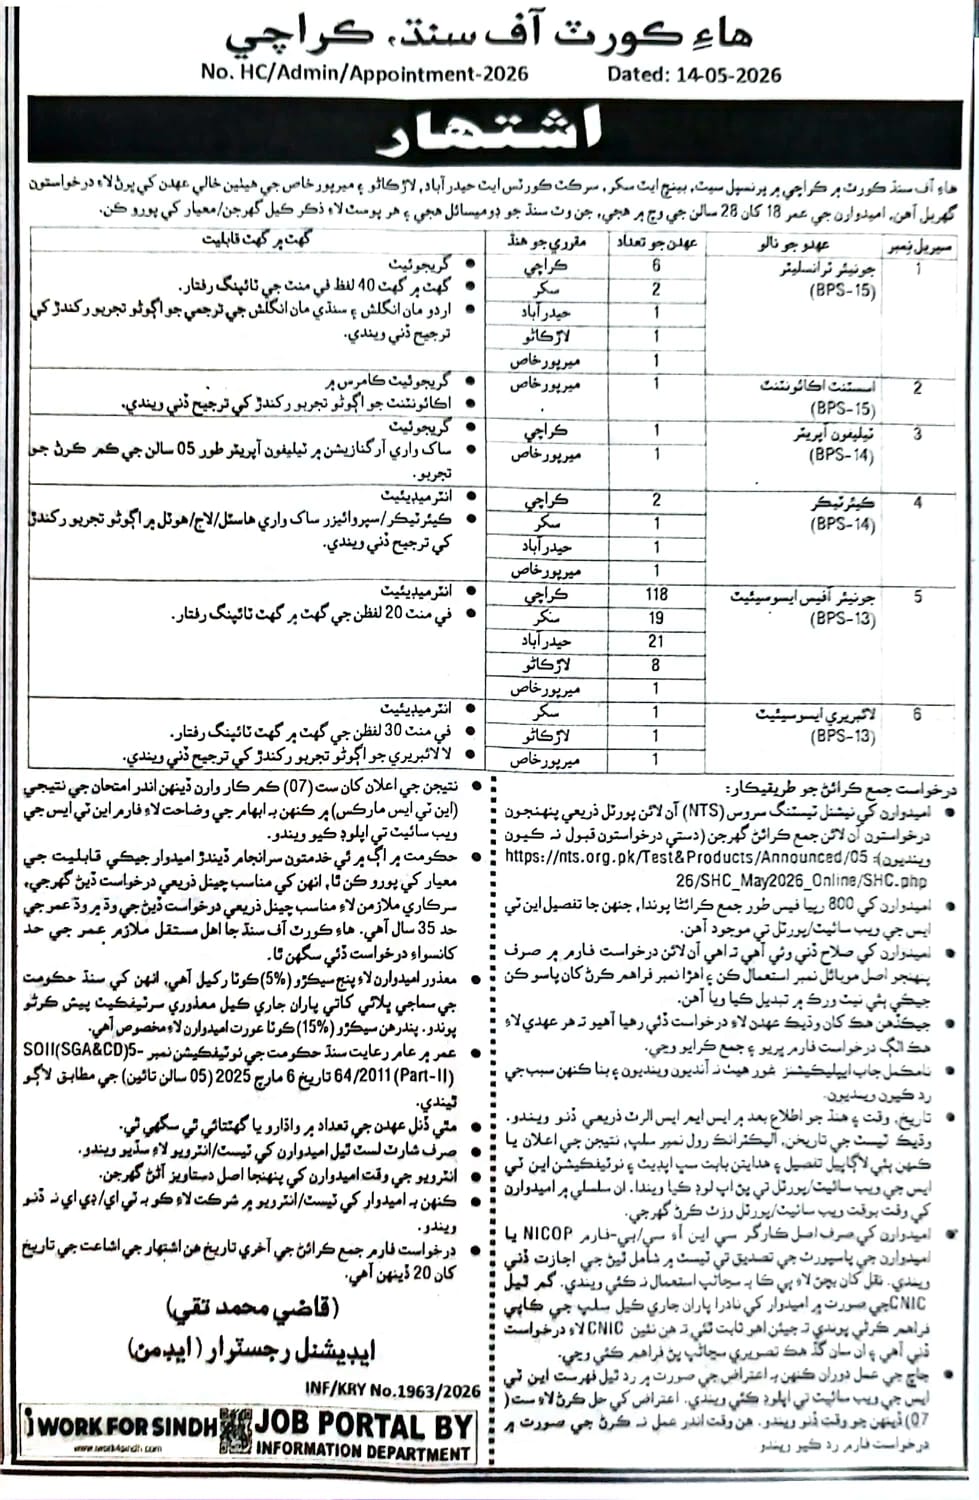 هاءِ ڪورٽ آف سنڌ، ڪراچي
No. HC/Admin/Appointment-2026 Dated: 14-05-2026
اشتهار
هاءِ آف سنڌ ڪورٽ ۾ ڪراچي ۾ پرنسپل سيٽ، بينچ ايٽ سکر، سرڪٽ ڪورٽس ايٽ حيدرآباد، لاڙڪاڻو ۽ ميرپورخاص جي هيٺين خالي عهدن کي ڀرڻ لاءِ درخواستون
گهربل آهن. اميدوارن جي عمر 18 کان 28 سالن جي وچ ۾ هجي، جن وٽ سنڌ جو ڊوميسائل هجي ۽ هر پوسٽ لاءِ ذڪر ڪيل گهرجن/معيار کي پورو ڪن.
سيريل نمبر عهدو جو نالو عهدن جو تعداد مقرري جو هنڌ گهٽ ۾ گهٽ قابليت
1 جونيئر ٽرانسليٽر (BPS-15)
6 ڪراچي
2 سکر
1 حيدرآباد
1 لاڙڪاڻو
1 ميرپورخاص
• گريجوئيٽ
• گهٽ ۾ گهٽ 40 لفظ في منٽ جي ٽائپنگ رفتار.
• اردو مان انگلش ۽ سنڌي مان انگلش جي ترجمي جو اڳوڻو تجربو رکندڙ کي
ترجيح ڏني ويندي.
2 اسسٽنٽ اڪائونٽنٽ (BPS-15)
1 ميرپورخاص
• گريجوئيٽ ڪامرس ۾
• اڪائونٽنٽ جو اڳوڻو تجربو رکندڙ کي ترجيح ڏني ويندي.
3 ٽيليفون آپريٽر (BPS-14)
1 ڪراچي
1 ميرپورخاص
• گريجوئيٽ
• ساک واري آرگنازيشن ۾ ٽيليفون آپريٽر طور 05 سالن جي ڪم ڪرڻ جو
تجربو.
4 ڪيئرٽيڪر (BPS-14)
2 ڪراچي
1 سکر
1 حيدرآباد
1 ميرپورخاص
• انٽرميڊيئيٽ
• ڪيئرٽيڪر/سپروائيزر ساک واري هاسٽل/لاج/هوٽل ۾ اڳوڻو تجربو رکندڙ
کي ترجيح ڏني ويندي.
5 جونيئر آفيس ايسوسيئيٽ (BPS-13)
118 ڪراچي
19 سکر
21 حيدرآباد
8 لاڙڪاڻو
1 ميرپورخاص
• انٽرميڊيئيٽ
• في منٽ 20 لفظن جي گهٽ ۾ گهٽ ٽائپنگ رفتار.
6 لائبريري ايسوسيئيٽ (BPS-13)
1 سکر
1 لاڙڪاڻو
1 ميرپورخاص
• انٽرميڊيئيٽ
• في منٽ 30 لفظن جي گهٽ ۾ گهٽ ٽائپنگ رفتار.
• لا لائبريري جو اڳوڻو تجربو رکندڙ کي ترجيح ڏني ويندي.
درخواست جمع ڪرائڻ جو طريقيڪار:
• اميدوارن کي نيشنل ٽيسٽنگ سروس (NTS) آن لائن پورٽل ذريعي پنهنجون
درخواستون آن لائن جمع ڪرائڻ گهرجن (دستي درخواستون قبول نه ڪيون
وينديون): https://nts.org.pk/Test&Products/Announced/05
26/SHC_May2026_Online/SHC.php
• اميدوارن کي 800 رپيا فيس طور جمع ڪرائڻا پوندا، جنهن جا تفصيل اين ٽي
ايس جي ويب سائيٽ/پورٽل تي موجود آهن.
• اميدوارن کي صلاح ڏني وئي آهي ته اهي آن لائن درخواست فارم ۾ صرف
پنهنجو اصل موبائل نمبر استعمال ڪن ۽ اهڙا نمبر فراهم ڪرڻ کان پاسو ڪن
جيڪي ٻئي نيٽ ورڪ ۾ تبديل ڪيا ويا آهن.
• جيڪڏهن هڪ کان وڌيڪ عهدن لاءِ درخواست ڏئي رهيا آهيو ته هر عهدي لاءِ
هڪ الڳ درخواست فارم ڀريو ۽ جمع ڪرايو وڃي.
• نامڪمل جاب ايپليڪيشنز غور هيٺ نه آنديون وينديون ۽ بنا ڪنهن سبب جي
رد ڪيون وينديون.
• تاريخ، وقت ۽ هنڌ جو اطلاع بعد ۾ ايس ايم ايس الرٽ ذريعي ڏنو ويندو.
وڌيڪ ٽيسٽ جي تاريخن، اليڪٽرانڪ رول نمبر سلپ، نتيجن جي اعلان يا
ڪنهن ٻئي لاڳاپيل تفصيل ۽ هدايتن بابت سڀ اپڊيٽ ۽ نوٽيفڪيشن اين ٽي
ايس جي ويب سائيٽ/پورٽل تي پڻ اپ لوڊ ڪيا ويندا. ان سلسلي ۾ اميدوارن
کي وقت بوقت ويب سائيٽ/پورٽل وزٽ ڪرڻ گهرجي.
• اميدوارن کي صرف اصل ڪارگر سي اين آءِ سي/بي-فارم NICOP يا
اميدوارن جي پاسپورٽ جي تصديق تي ٽيسٽ ۾ شامل ٿيڻ جي اجازت ڏني
ويندي. نقل کان بچڻ لاءِ ٻي ڪا به سڃاڻپ استعمال نه ڪئي ويندي. گم ٿيل
CNIC جي صورت ۾ اميدوار کي نادرا پاران جاري ڪيل سلپ جي ڪاپي
فراهم ڪرڻي پوندي ته جيئن اهو ثابت ٿئي ته هن نئين CNIC لاءِ درخواست
ڏني آهي ۽ ان سان گڏ هڪ تصويري سڃاڻپ پڻ فراهم ڪئي وڃي.
• جاچ جي عمل دوران ڪنهن به اعتراض جي صورت ۾ رد ٿيل فهرست اين ٽي
ايس جي ويب سائيٽ تي اپلوڊ ڪئي ويندي. اعتراض کي حل ڪرڻ لاءِ ست (
07) ڏينهن جو وقت ڏنو ويندو. هن وقت اندر عمل نه ڪرڻ جي صورت ۾
درخواست فارم رد ڪيو ويندو
• نتيجن جي اعلان کان ست (07) ڪم ڪار وارن ڏينهن اندر امتحان جي نتيجي
(اين ٽي ايس مارڪس) ۾ ڪنهن به ابهام جي وضاحت لاءِ فارم اين ٽي ايس جي
ويب سائيٽ تي اپلوڊ ڪيو ويندو.
• حڪومت ۾ اڳ ۾ ئي خدمتون سرانجام ڏيندڙ اميدوار جيڪي قابليت جي
معيار کي پورو ڪن ٿا، انهن کي مناسب چينل ذريعي درخواست ڏيڻ گهرجي،
سرڪاري ملازمن لاءِ مناسب چينل ذريعي درخواست ڏيڻ جي وڌ ۾ وڌ عمر جي
حد 35 سال آهي. هاءِ ڪورٽ آف سنڌ جا اهل مستقل ملازم عمر جي حد
کانسواءِ درخواست ڏئي سگهن ٿا.
• معذور اميدوارن لاءِ پنج سيڪڙو (5%) ڪوٽا رکيل آهي، انهن کي سنڌ حڪومت
جي سماجي ڀلائي کاتي پاران جاري ڪيل معذوري سرٽيفڪيٽ پيش ڪرڻو
پوندو. پندرهن سيڪڙو (15%) ڪوٽا عورت اميدوارن لاءِ مخصوص آهي.
• عمر ۾ عام رعايت سنڌ حڪومت جي نوٽيفڪيشن نمبر SOII(SGA&CD)5-
64/2011 (Part-II) تاريخ 6 مارچ 2025 (05 سالن تائين) جي مطابق لاڳو
ٿيندي.
• مٿي ڏنل عهدن جي تعداد ۾ واڌارو يا گهٽتائي ٿي سگهي ٿي.
• صرف شارٽ لسٽ ٿيل اميدوارن کي ٽيسٽ/انٽرويو لاءِ سڏيو ويندو.
• انٽرويو جي وقت اميدوارن کي پنهنجا اصل دستاويز آڻڻ گهرجن.
• ڪنهن به اميدوار کي ٽيسٽ/انٽرويو ۾ شرڪت لاءِ ڪو به ٽي اي/ڊي اي نه ڏنو
ويندو.
• درخواست فارم جمع ڪرائڻ جي آخري تاريخ هن اشتهار جي اشاعت جي تاريخ
کان 20 ڏينهن آهي.
(قاضي محمد تقي)
ايڊيشنل رجسٽرار (ايڊمن)
INF/KRY No.1963/2026
i WORK FOR SINDH
www.iwork4sindh.com
JOB PORTAL BY
INFORMATION DEPARTMENT